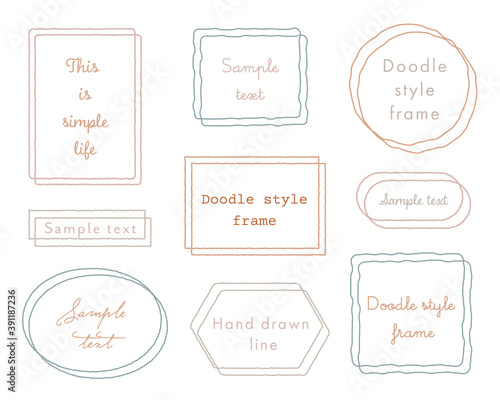 This
is
simple
life
Sample
text
Doodle
style
frame
Sample text
Doodle style
frame
Sample text
Sample
text
Hand drawn
line
Doodle style
frame
Adobe Stock | #391187236